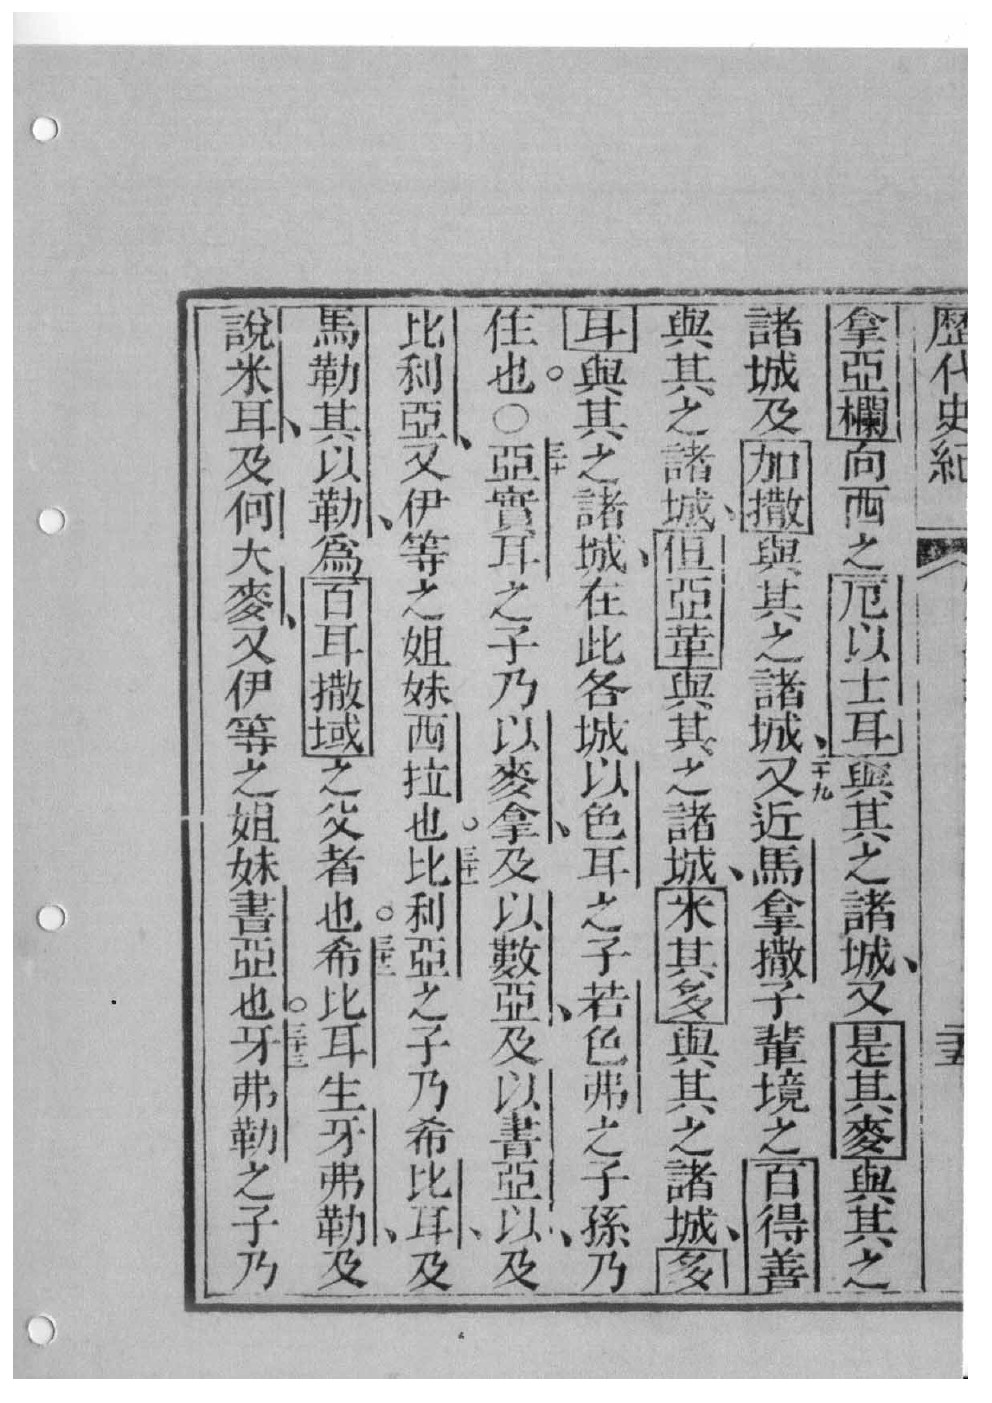 歷代史紀
二五
拿亞欄向西之厄以士耳與其之諸城、又是其麥與其之
諸城及加撒與其之諸城、二十九又近馬拿撒子輩境之百得善
與其之諸城、但亞革與其之諸城、米其多與其之諸城、多
耳與其之諸城、在此各城以色耳之子若色弗之子孫乃
住也。○三十亞實耳之子乃以麥拿、及以數亞、及以書亞、以及
比利亞、又伊等之姐妹西拉也。三十一比利亞之子乃希比耳、及
馬勒其以勒、爲百耳撒域之父者也。三十二希比耳生牙弗勒、及
說米耳、及何大麥、又伊等之姐妹書亞也。三十三牙弗勒之子乃